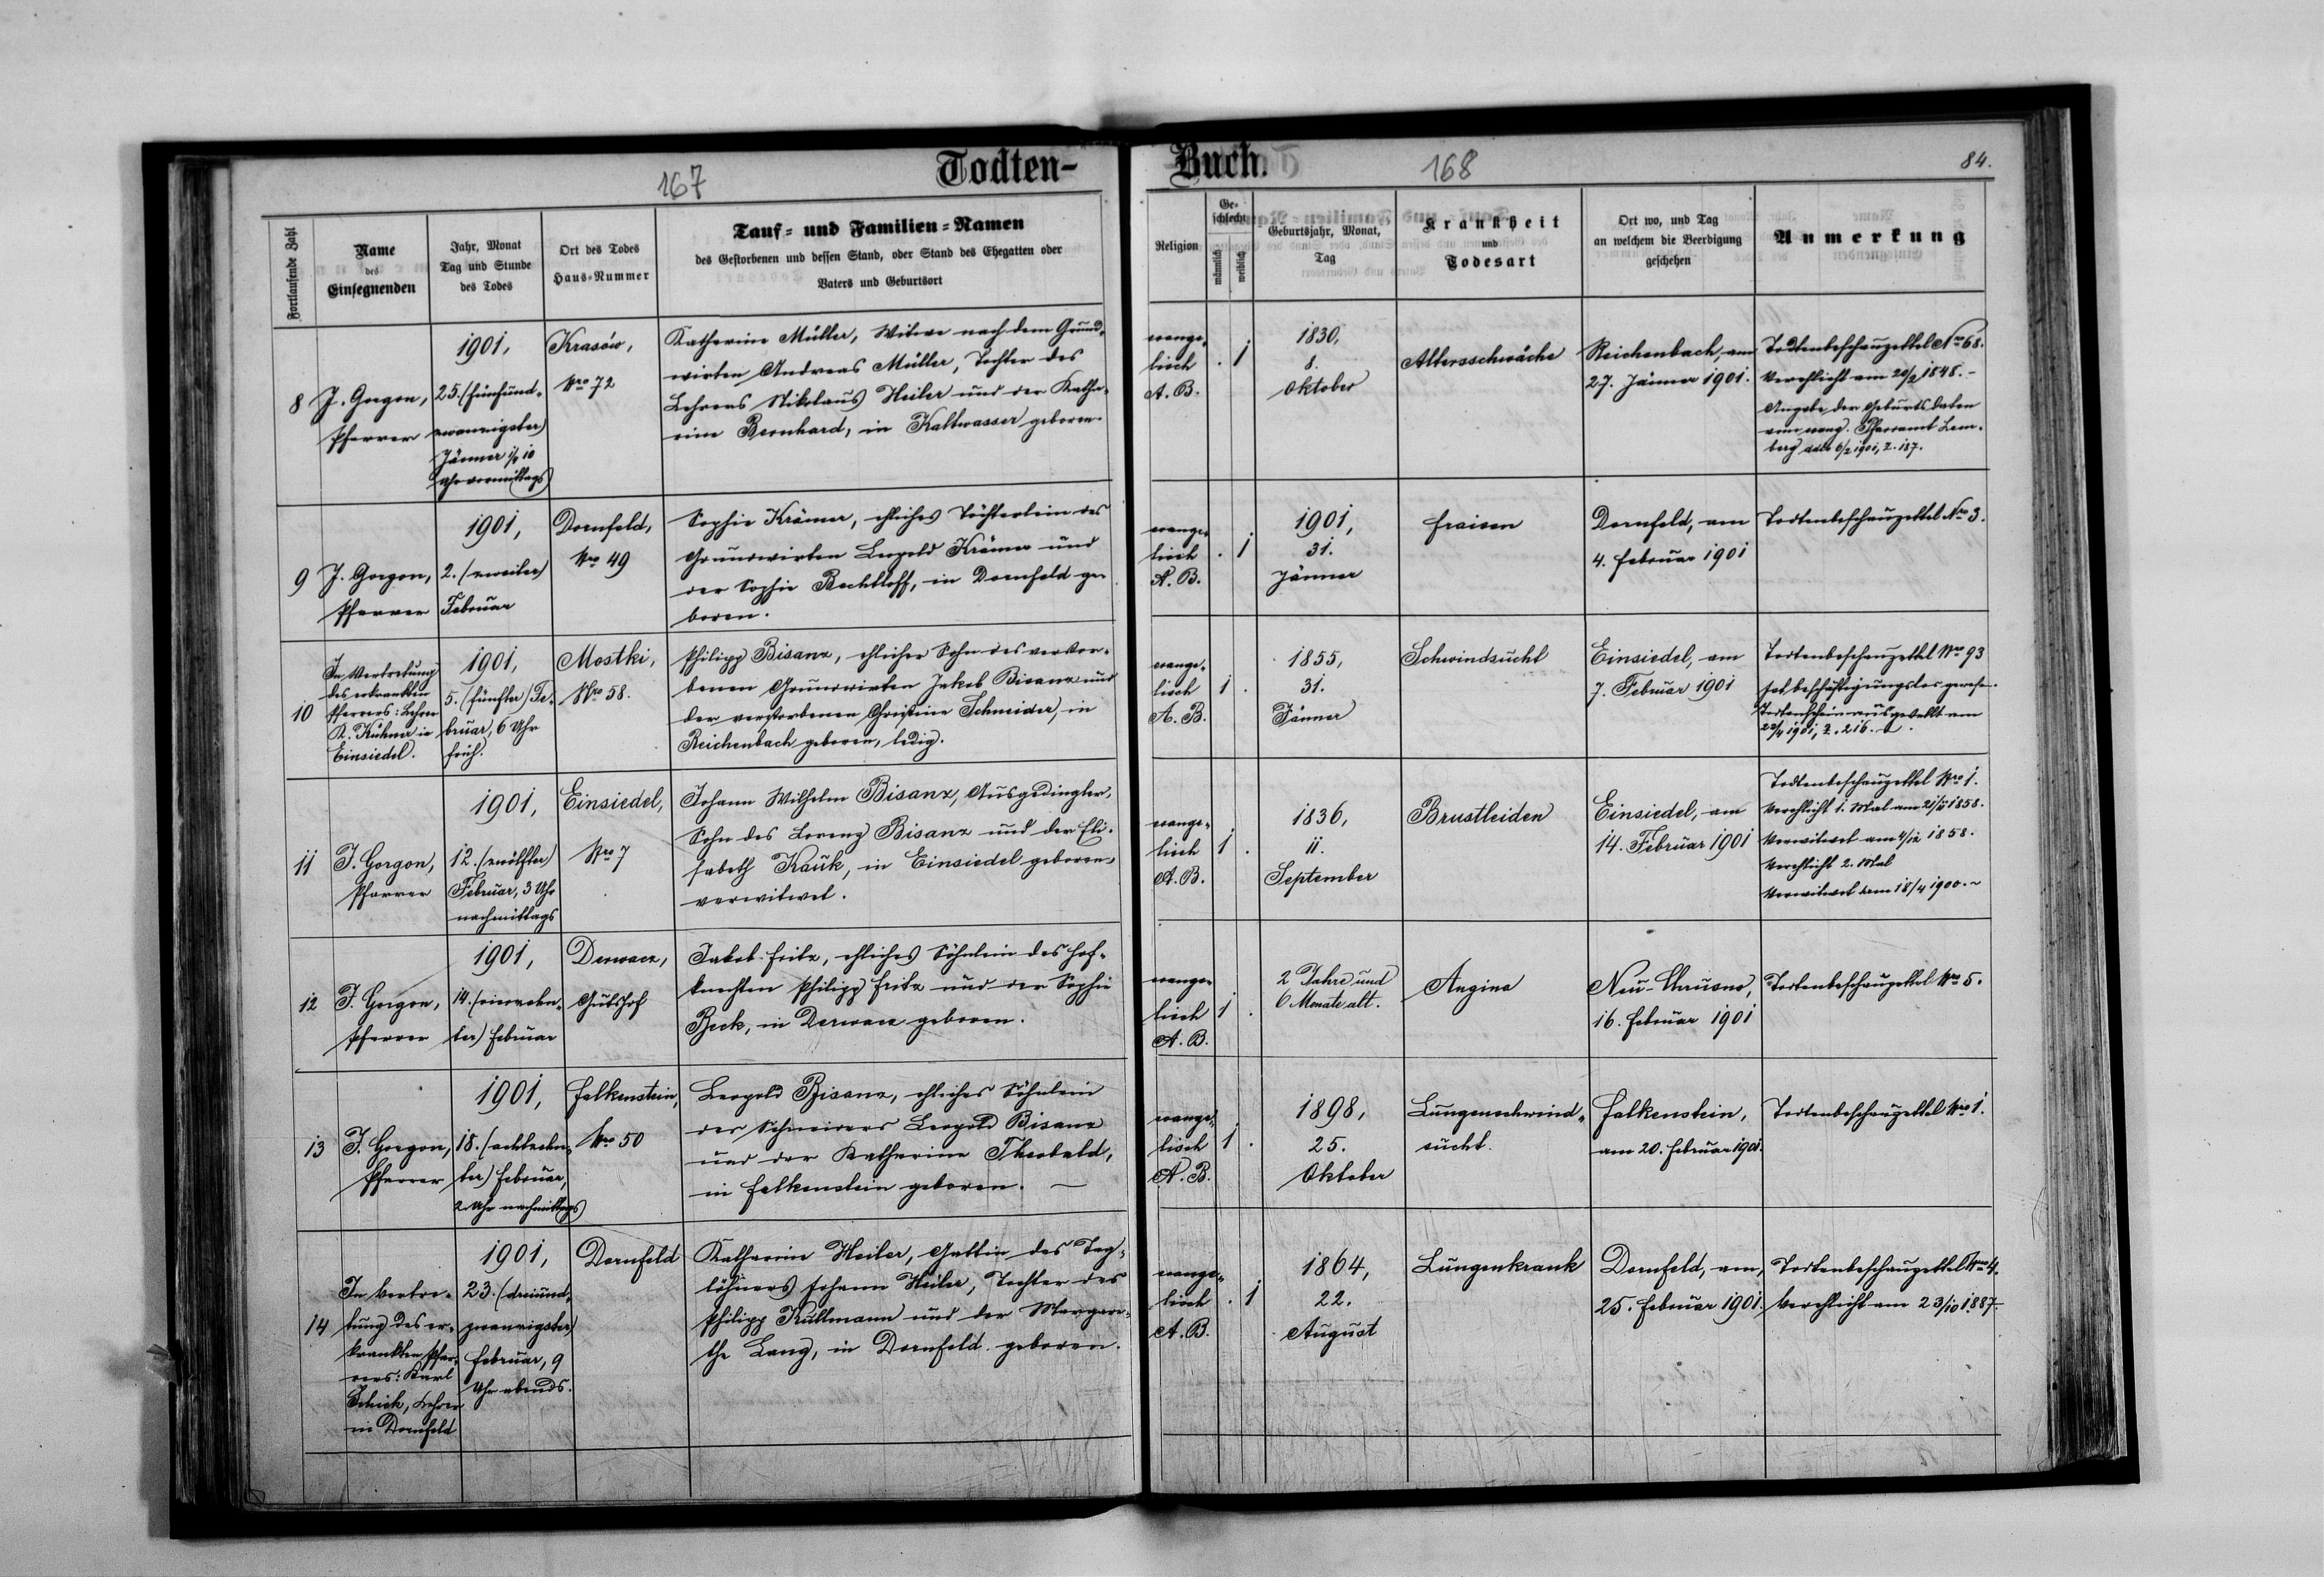 167
Todten-
Buch.
168
84.
Fortlaufende Zahl
Name
des
Einsegnenden
Jahr, Monat
Tag und Stunde
des Todes
Ort des Todes
Haus-Nummer
Tauf- und Familien-Namen
des Gestorbenen und dessen Stand, oder Stand des Ehegatten oder
Vaters und Geburtsort
Religion
Ge-
schlecht
männlich
weiblich
Geburtsjahr, Monat,
Tag
Krankheit
und
Todesart
Ort wo, und Tag
an welchem die Beerdigung
geschehen
Anmerkung
8
J. Gorgon,
Pfarrer
1901,
25. (fünfund-
zwanzigster)
Jänner ½ 10
Uhr vormittags
Krasów,
Nro 72
Katharina Müller, Witwe nach dem Grund-
wirten Andreas Müller, Tochter des
Lehrers Nikolaus Heiler und der Katha-
rina Bernhard, in Kaltwasser geboren.
evange-
lisch
A. B.
. 1
1830,
8.
Oktober
Altersschwäche
Reichenbach, am
27. Jänner 1901.
Todtenbeschauzettel Nro 68.
Verehlicht am 20/2 1848. -
Angabe der Geburtsdaten
vom evang. Pfarramt Lem-
berg ddto 6/2 1901, Z. 187.
9
J. Gorgon,
Pfarrer
1901,
2. (zweiter)
Februar
Dornfeld,
Nro 49
Sophie Krämer, ehliches Töchterlein des
Grundwirten Leopold Krämer und
der Sophie Bechtloff, in Dornfeld ge-
boren.
evange-
lisch
A. B.
. 1
1901,
31.
Jänner
Fraisen
Dornfeld, am
4. Februar 1901
Todtenbeschauzettel Nro 3.
10
In Vertretung
des erkrankten
Pfarrers: Lehrer
K. Kühner in
Einsiedel.
1901,
5. (fünfter) Fe-
bruar, 6 Uhr
früh.
Mostki,
Nro 58.
Philipp Bisanz, ehlicher Sohn des verstor-
benen Grundwirten Jakob Bisanz und
der verstorbenen Christine Schneider, in
Reichenbach geboren, ledig.
evange-
lisch
A. B.
1 .
1855,
31.
Jänner
Schwindsucht
Einsiedel, am
7. Februar 1901
Todtenbeschauzettel Nro 93
Todtenschein ausgestellt am
1901, Z. 216.
11
J. Gorgon,
Pfarrer
1901,
12. (zwölfter)
Februar, 3 Uhr
nachmittags
Einsiedel,
Nro 7
Johann Wilhelm Bisanz, Ausgedingler,
Sohn des Lorenz Bisanz und der Eli-
sabeth Kauk, in Einsiedel geboren,
verwitwet.
evange-
lisch
A. B.
1 .
1836,
11.
September
Brustleiden
Einsiedel, am
14. Februar 1901
Todtenbeschauzettel Nro 1.
Verehlicht 1. Mal am 1858.
Verwitwet am 4/12 1858.
Verehlicht 2. Mal
Verwitwet am 18/4 1900. ~
12
J. Gorgon,
Pfarrer
1901,
14. (vierzehn-
ter) Februar
Derwacz,
Gutshof
Jakob Fritz, ehliches Söhnlein des Hof-
knechten Philipp Fritz und der Sophie
Beck, in Derwacz geboren.
evange-
lisch
A. B.
1 .
2 Jahre und
6 Monate alt.
Angina
Neu-Chrusno,
16. Februar 1901
Todtenbeschauzettel Nro 5.
13
J. Gorgon,
Pfarrer
1901,
18. (achtzehn-
ter) Februar,
2 Uhr nachmittags
Falkenstein,
Nro 50
Leopold Bisanz, ehliches Söhnlein
des Schneiders Leopold Bisanz
und der Katharina Theobald,
in Falkenstein geboren. —
evange-
lisch
A. B.
1 .
1898,
25.
Oktober
Lungenschwind-
sucht.
Falkenstein,
am 20. Februar 1901.
Todtenbeschauzettel Nro 1.
14
In Vertre-
tung des er-
krankten Pfar-
rers: Karl
Schick, Lehrer
in Dornfeld
1901,
23. (dreiund-
zwanzigster)
Februar, 9
Uhr abends.
Dornfeld
Katharina Heiler, Gattin des Tag-
löhners Johann Heiler, Tochter des
Philipp Kullmann und der Margare-
the Lang, in Dornfeld geboren.
evange-
lisch
A. B.
. 1
1864,
22.
August
Lungenkrank
Dornfeld, am
25. Februar 1901.
Todtenbeschauzettel Nro 4.
Verehlicht am 23/10 1887.-